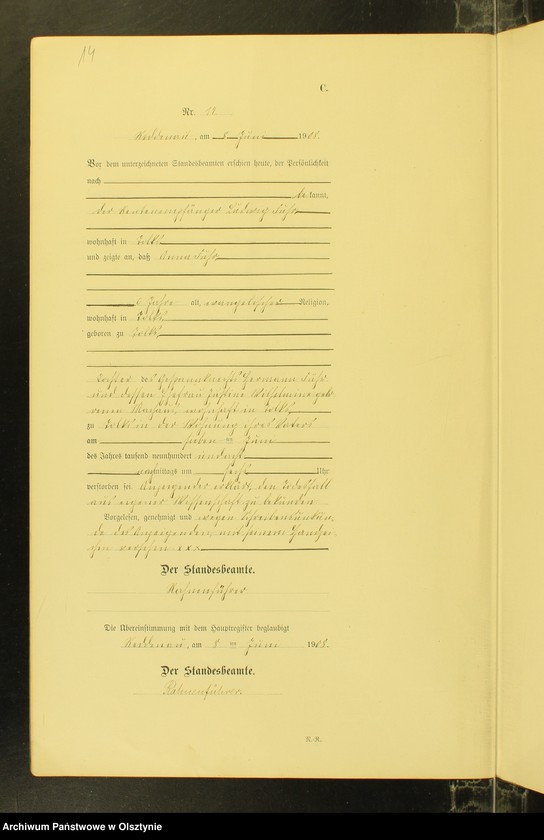 14
C.
Nr. 11
Keddenau, am 8 Juni 1908.
Vor dem unterzeichneten Standesbeamten erschien heute, der Persönlichkeit
nach
be kannt,
der Rentenempfänger Ludwig
wohnhaft in Tolks
und zeigte an, daß Anna
6 Jahre alt, evangelischer Religion,
wohnhaft in Tolks,
geboren zu Tolks,
Tochter des Hermann
und dessen Ehefrau Justine Wilhelmine gebo
renen wohnhaft in Tolks,
zu Tolks in der Wohnung ihres Vaters
am sieben ten Juni
des Jahres tausend neunhundert und acht
nachmittags um sechs Uhr
verstorben sei. Anzeigender erklärt, den Todesfall
aus eigener Wissenschaft zu bekunden.
Vorgelesen, genehmigt und wegen Schreibensunkun,
de des Anzeigenden, mit seinem Handzei
chen versehen x x x
Der Standesbeamte.
Rahnenführer
Die Übereinstimmung mit dem Hauptregister beglaubigt
Keddenau, am 8 ten Juni 1908.
Der Standesbeamte.
Rahnenführer.
R.-R.
Archiwum Państwowe w Olsztynie